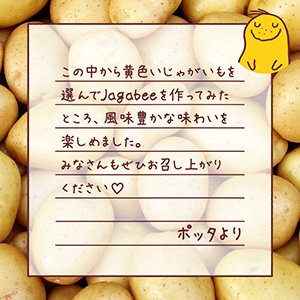 この中から黄色いじゃがいもを
選んでJagabeeを作ってみた
ところ、風味豊かな味わいを
楽しめました。
みなさんもぜひお召し上がり
ください♡
ポッタより